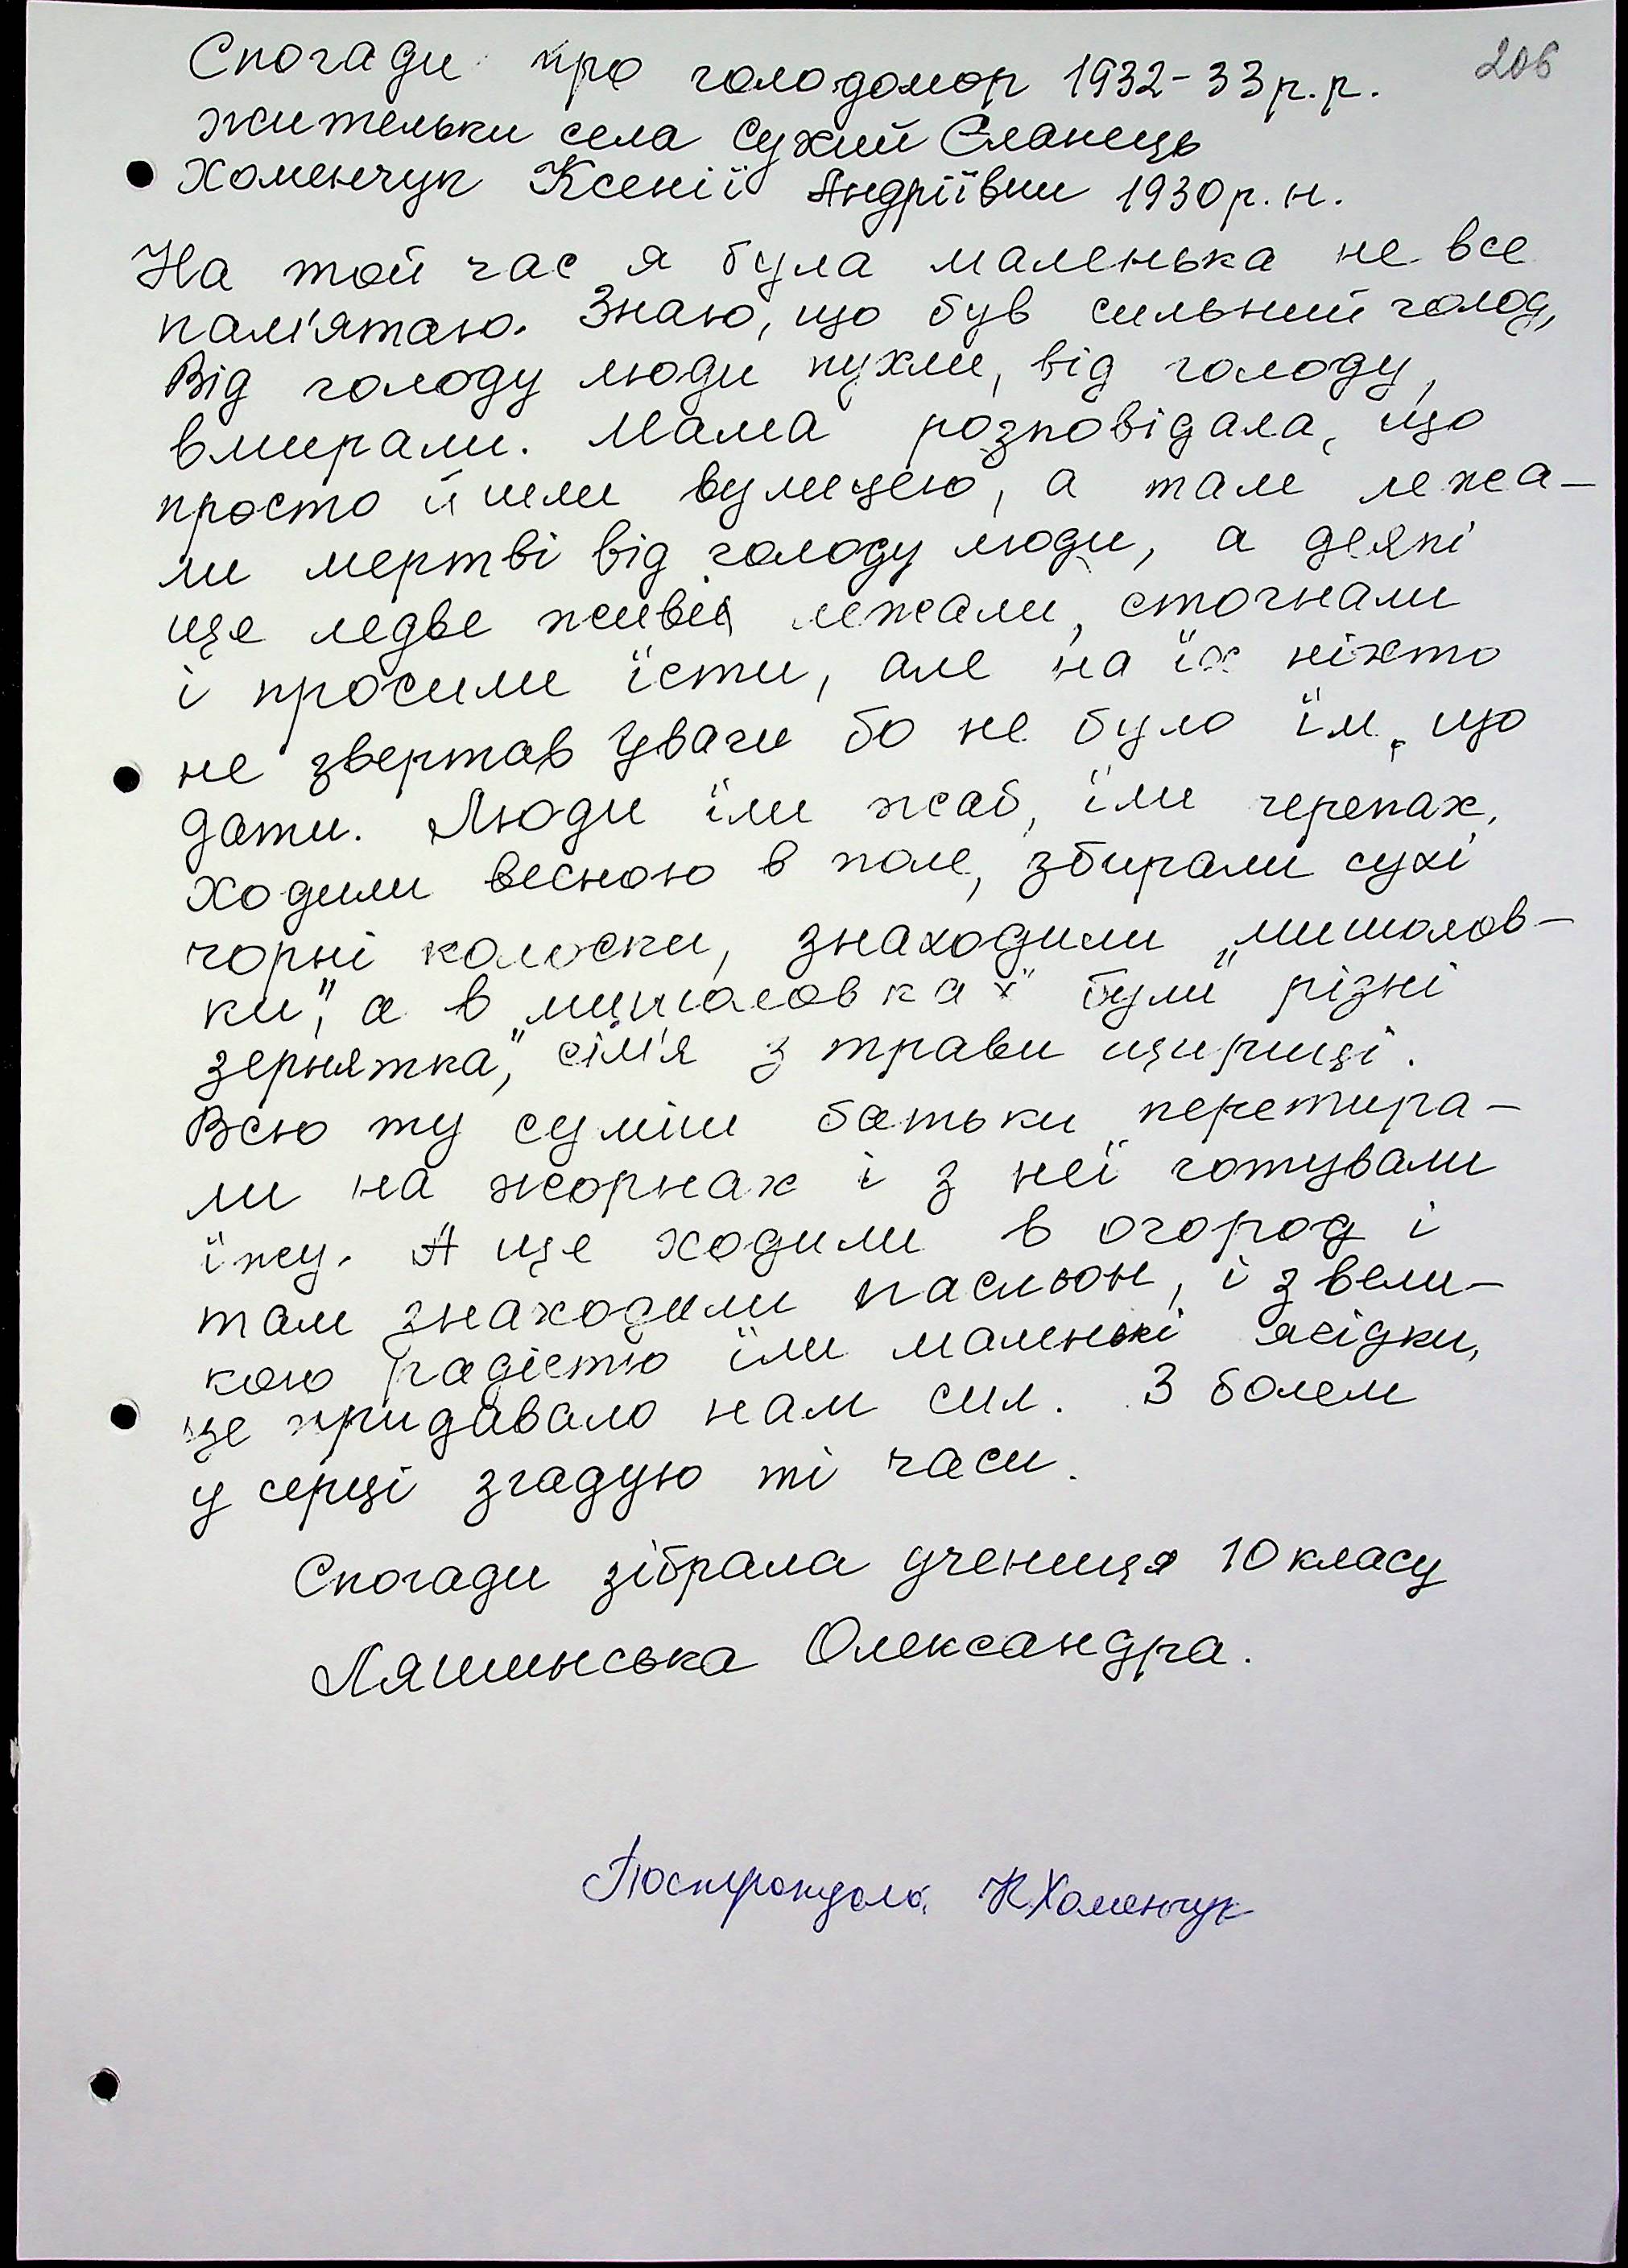 206
Спогади про голодомор 1932-33р.р.
жительки села Сухий Єланець
Хоменчук Ксенії Андріївни 1930р.н.
На той час я була маленька не все
пам'ятаю. Знаю, що був сильний голод,
Від голоду люди пухли, від голоду,
вмирали. Мама розповідала, що
просто йшли вулицею, а там лежа-
ли мертві від голоду люди, а деякі
ще ледве живі лежали, стогнали
і просили їсти, але на їх ніхто
не звертав уваги бо не було їм, що
дати. Люди їли жаб, їли черепах,
ходили весною в поле, збирали сухі
чорні колоски, знаходили „мишолов-
ки", а в „мишоловках" були різні
зернятка, сім'я з трави щириці.
Всю ту суміш батьки перетира-
ли на жорнах і з неї готували
їжу. А ще ходили в огород і
там знаходили пасльон, і з вели-
кою радістю їли маленькі ягідки,
це придавало нам сил. З болем
у серці згадую ті часи.
Спогади зібрала учениця 10 класу
Ляшинська Олександра.
К Хоменчук